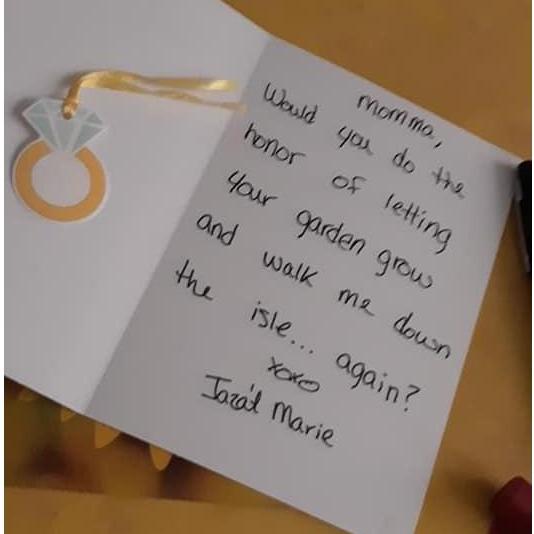 momma,
Would you do the
honor of letting
your garden grow
and walk me down
the isle... again?
xoxo
Jaza't Marie